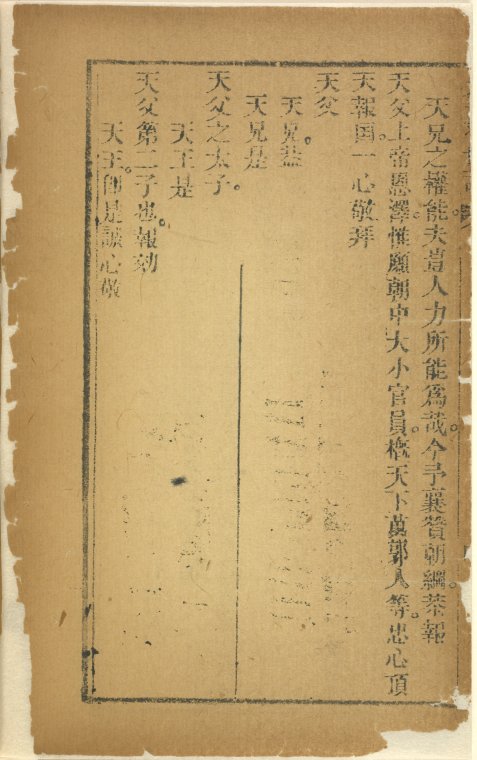 天兄之權能。夫豈人力所能為哉。今予襄贊朝綱。恭報
天父上帝恩澤。惟願朝中大小官員。概天下萬郭人等。忠心頂
天報国。一心敬拜
天父
天兄。蓋
天兄是
天父之太子。
天王是
天父第二子也。報効
天王。即是誠心敬